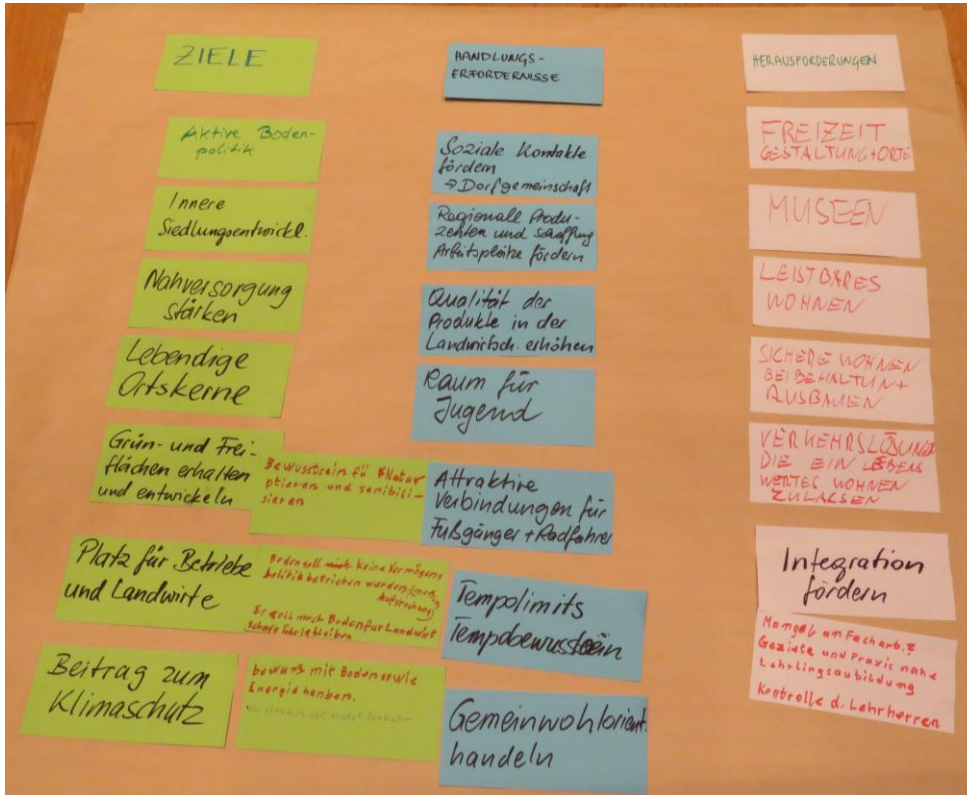 ZIELE
Aktive Boden-
politik
Innere
Siedlungsentwickl.
Nahversorgung
stärken
Lebendige
Ortskerne
Grün- und Frei-
flächen erhalten
und entwickeln
Bewusstsein für Natur
und
sieren
Platz für Betriebe
und Landwirte
Boden soll keine Vermögens
politik betrieben werden
Es soll noch Boden für Landwirt
schaft
Beitrag zum
Klimaschutz
bewusst mit Boden sowie
Energie
HANDLUNGS-
ERFORDERNISSE
Soziale Kontakte
fördern
→ Dorfgemeinschaft
Regionale Produ-
zenten und schaffung
Arbeitsplätze fördern
Qualität der
Produkte in der
Landwirtsch. erhöhen
Raum für
Jugend
Attraktive
Verbindungen für
Fußgänger + Radfahrer
Tempolimits
Tempobewusstsein
Gemeinwohlorient.
handeln
HERAUSFORDERUNGEN
FREIZEIT
GESTALTUNG+ORTE
MUSEEN
LEISTBARES
WOHNEN
SICHERE WOHNEN
BEIBEHALTUN+
AUSBAUEN
VERKEHRSLÖSUNG
DIE EIN LEBENS
WERTES WOHNEN
ZULASSEN
Integration
fördern
Mangel an Facharb.
Gezielte und Praxis nahe
Lehrlingsaubildung
Kontrolle d. Lehrherren